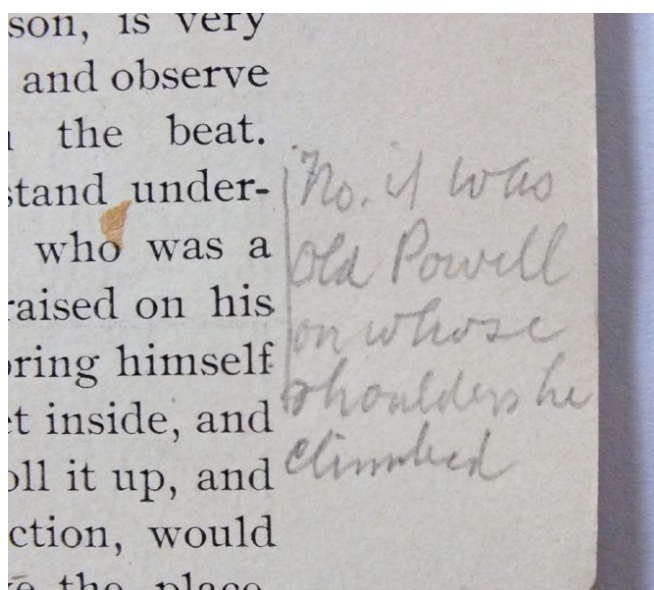 son, is very
and observe
the beat.
stand under-
who was a
raised on his
bring himself
et inside, and
oll it up, and
ction, would
the place
No. it was
Old Powell
on whose
shoulders he
climbed